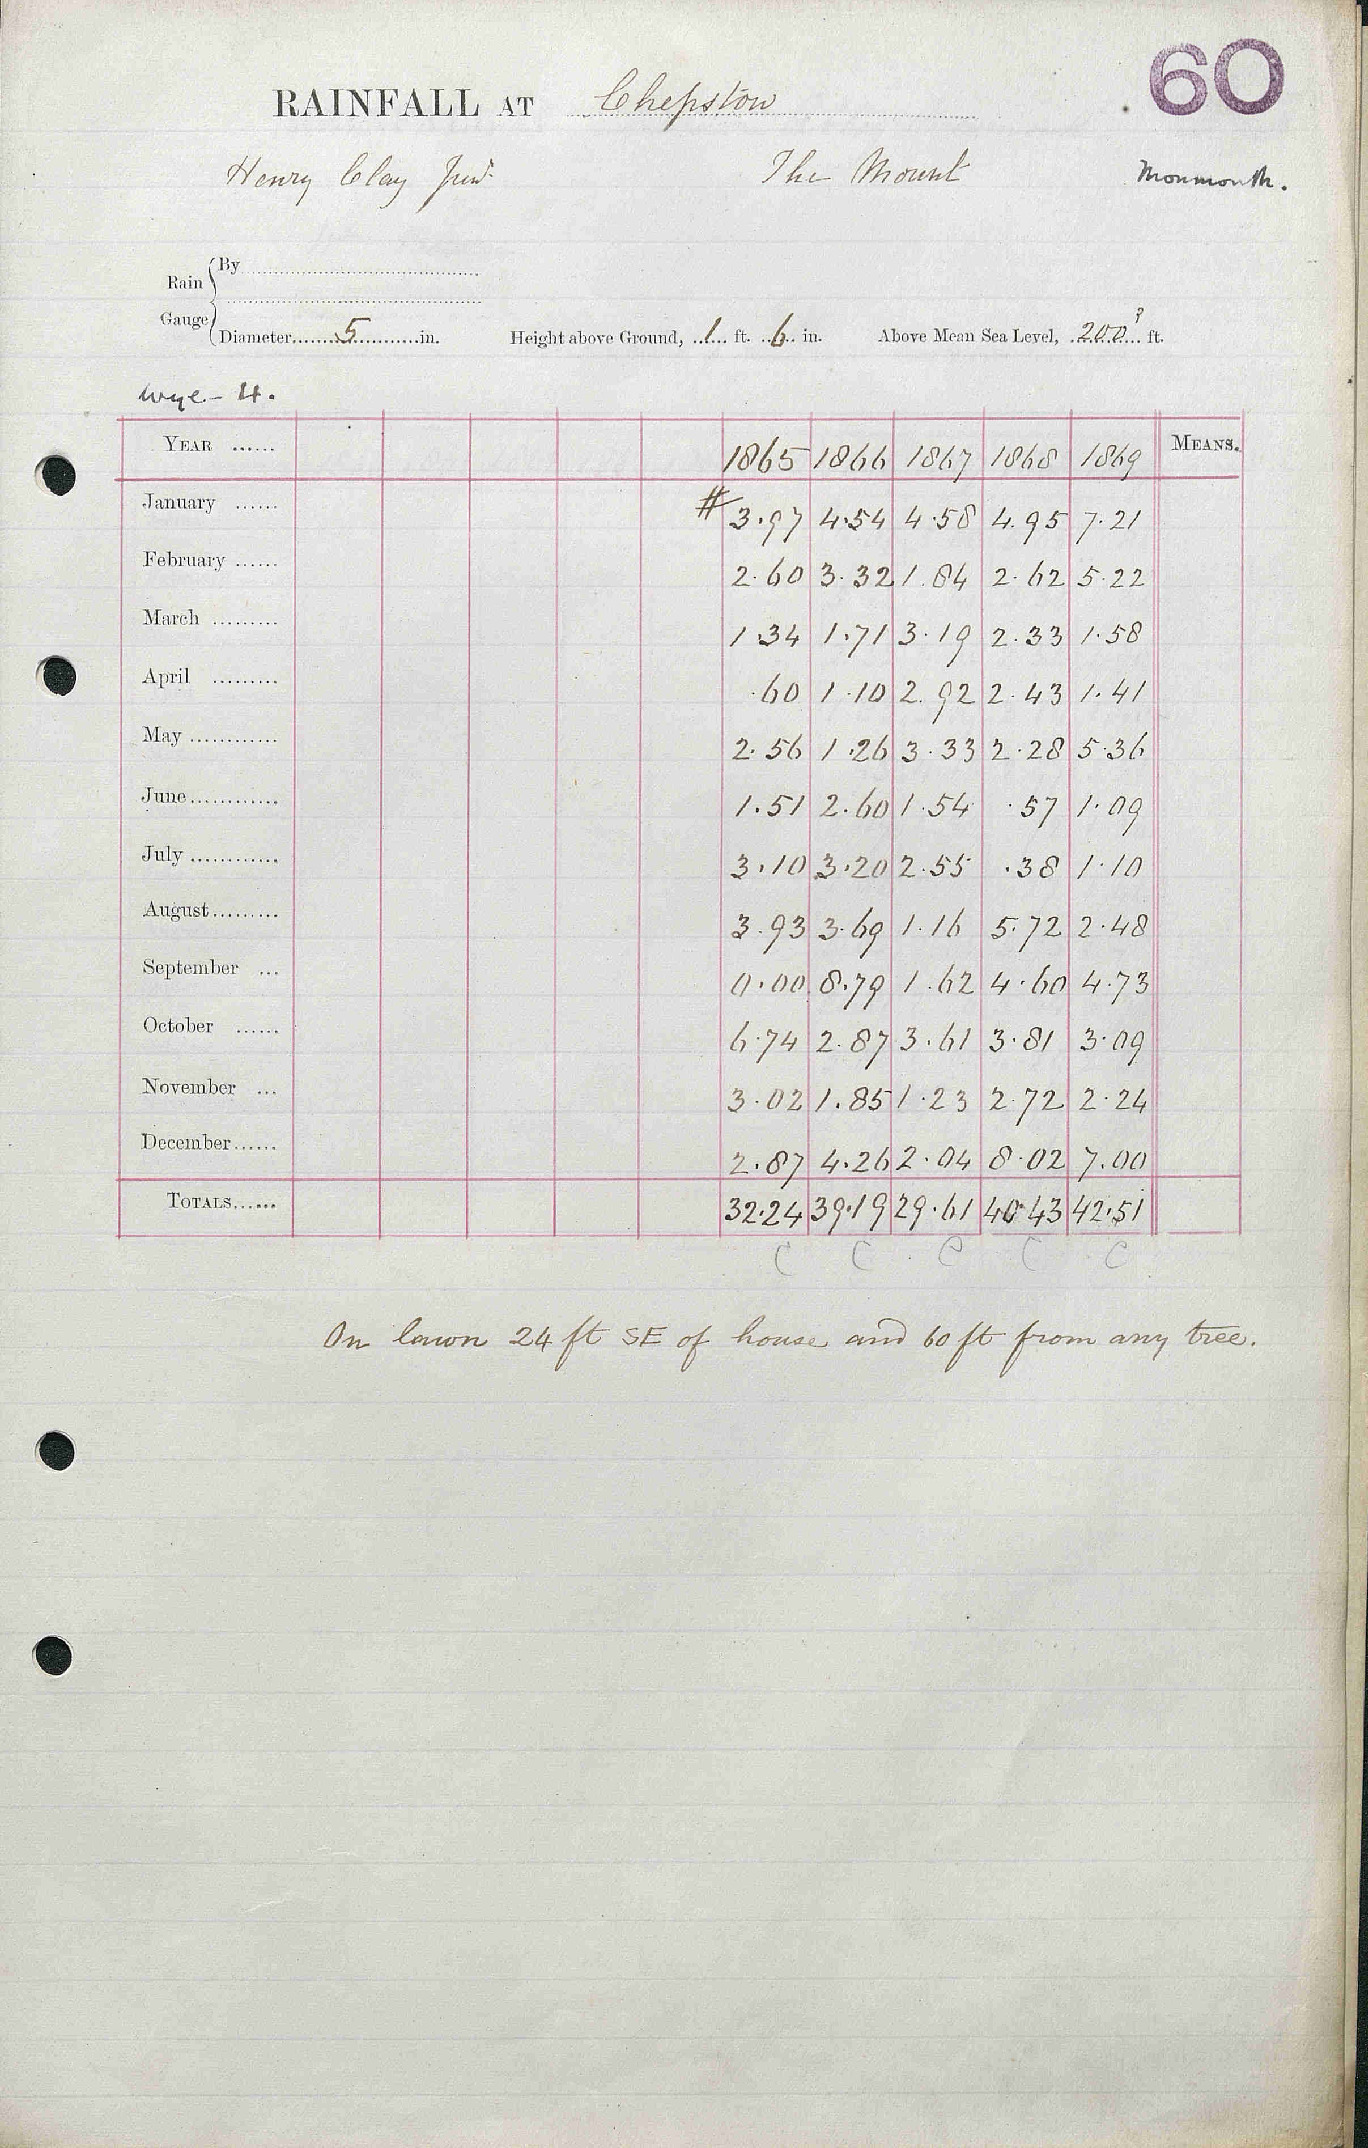 60
RAINFALL AT Chepstow
Henry Clay Junr. The Mount Monmouth.
Rain Gauge
By
Diameter 5 in. Height above Ground, 1 ft. 6 in. Above Mean Sea Level, 200? ft.
Wye - H.
YEAR ...... 1865 1866 1867 1868 1869 MEANS.
January ...... # 3.97 4.54 4.58 4.95 7.21
February ...... 2.60 3.32 1.84 2.62 5.22
March ......... 1.34 1.71 3.19 2.33 1.58
April ......... .60 1.10 2.92 2.43 1.41
May ............ 2.56 1.26 3.33 2.28 5.36
June ............ 1.51 2.60 1.54 .57 1.09
July ............ 3.10 3.20 2.55 .38 1.10
August ......... 3.93 3.69 1.16 5.72 2.48
September ... 0.00 8.79 1.62 4.60 4.73
October ...... 6.74 2.87 3.61 3.81 3.09
November ... 3.02 1.85 1.23 2.72 2.24
December ...... 2.87 4.26 2.04 8.02 7.00
TOTALS ...... 32.24 39.19 29.61 40.43 42.51
C C C C C
On lawn 24 ft SE of house and 60 ft from any tree.